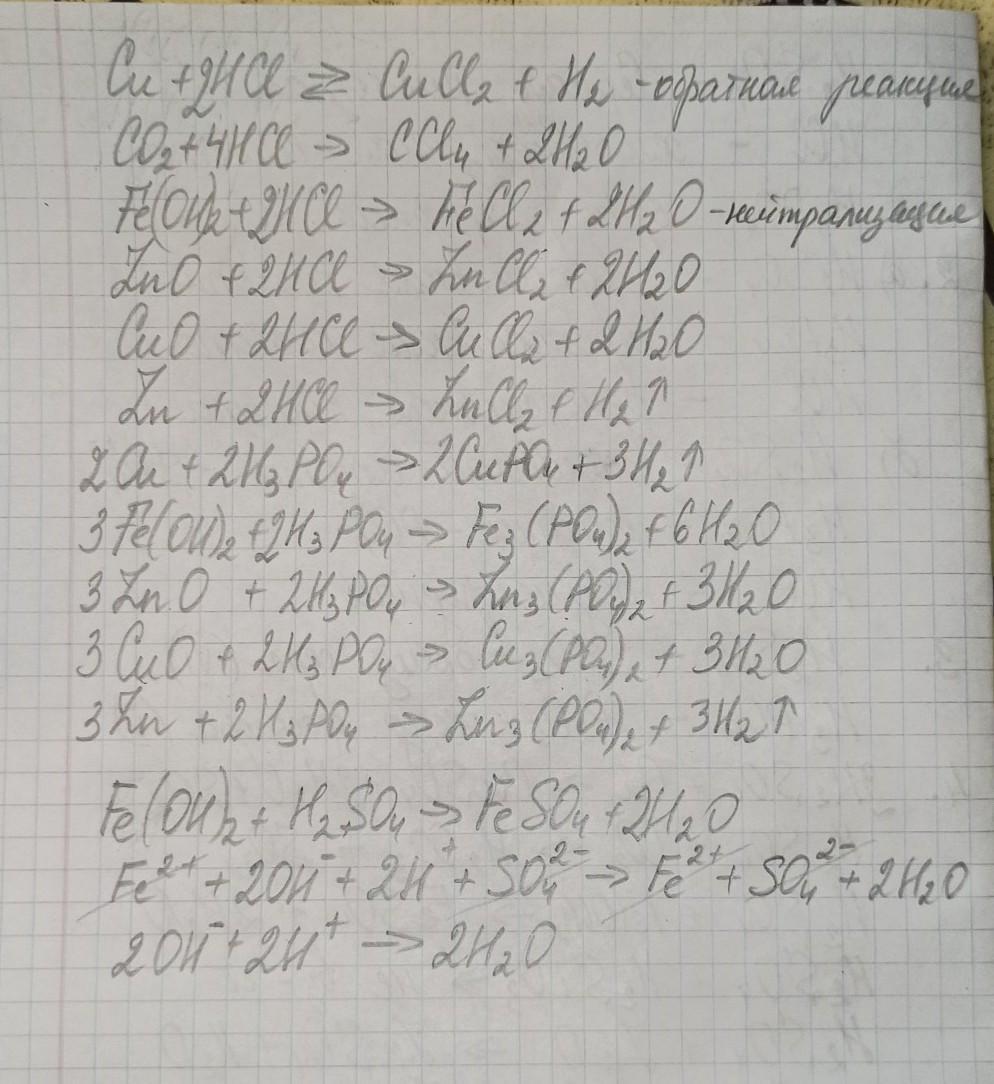 Cu + 2HCl ⇄ CuCl₂ + H₂ - обратная реакция
CO₂ + 4HCl → CCl₄ + 2H₂O
Fe(OH)₂ + 2HCl → FeCl₂ + 2H₂O - нейтрализация
ZnO + 2HCl → ZnCl₂ + 2H₂O
CuO + 2HCl → CuCl₂ + 2H₂O
Zn + 2HCl → ZnCl₂ + H₂↑
2Cu + 2H₃PO₄ → 2CuPO₄ + 3H₂↑
3Fe(OH)₂ + 2H₃PO₄ → Fe₃(PO₄)₂ + 6H₂O
3ZnO + 2H₃PO₄ → Zn₃(PO₄)₂ + 3H₂O
3CuO + 2H₃PO₄ → Cu₃(PO₄)₂ + 3H₂O
3Zn + 2H₃PO₄ → Zn₃(PO₄)₂ + 3H₂↑
Fe(OH)₂ + H₂SO₄ → FeSO₄ + 2H₂O
Fe²⁺ + 2OH⁻ + 2H⁺ + SO₄²⁻ → Fe²⁺ + SO₄²⁻ + 2H₂O
2OH⁻ + 2H⁺ → 2H₂O